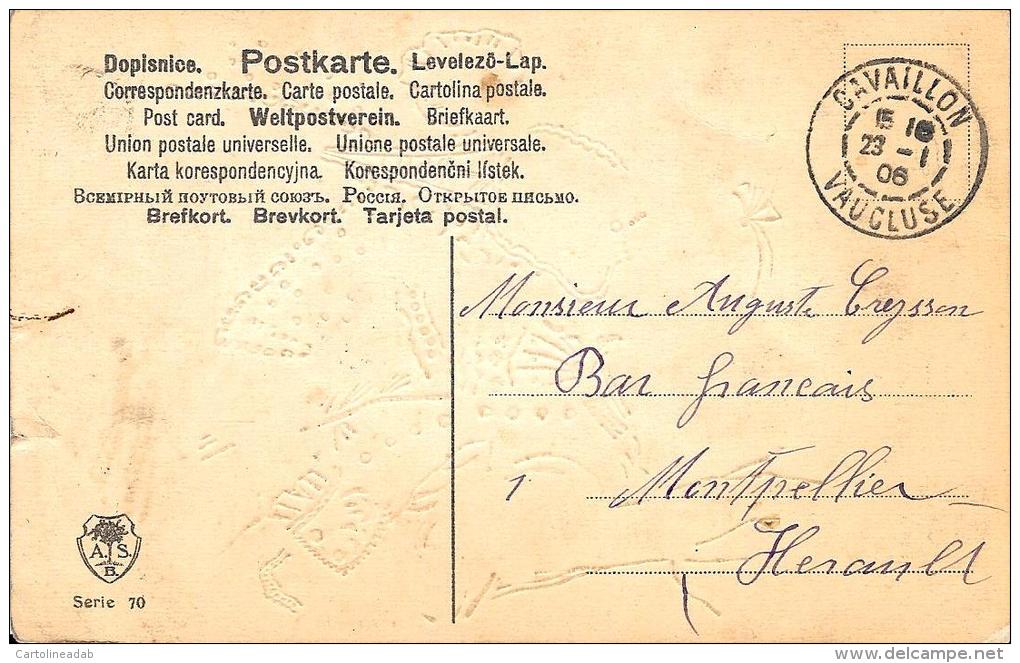 Dopisnice. Postkarte. Levelező-Lap.
Correspondenzkarte. Carte postale. Cartolina postale.
Post card. Weltpostverein. Briefkaart.
Union postale universelle. Unione postale universale.
Karta korespondencyjna. Korespondenční lístek.
Всемірный поутовый союзъ. Россія. Открытое письмо.
Brefkort. Brevkort. Tarjeta postal.
CAVAILLON
15 16
23 - 1
06
VAUCLUSE
Monsieur Auguste Creysson
Bar français
1 Montpellier
Herault
A. S.
B.
Serie 70
Cartolineadab
delcampe.net